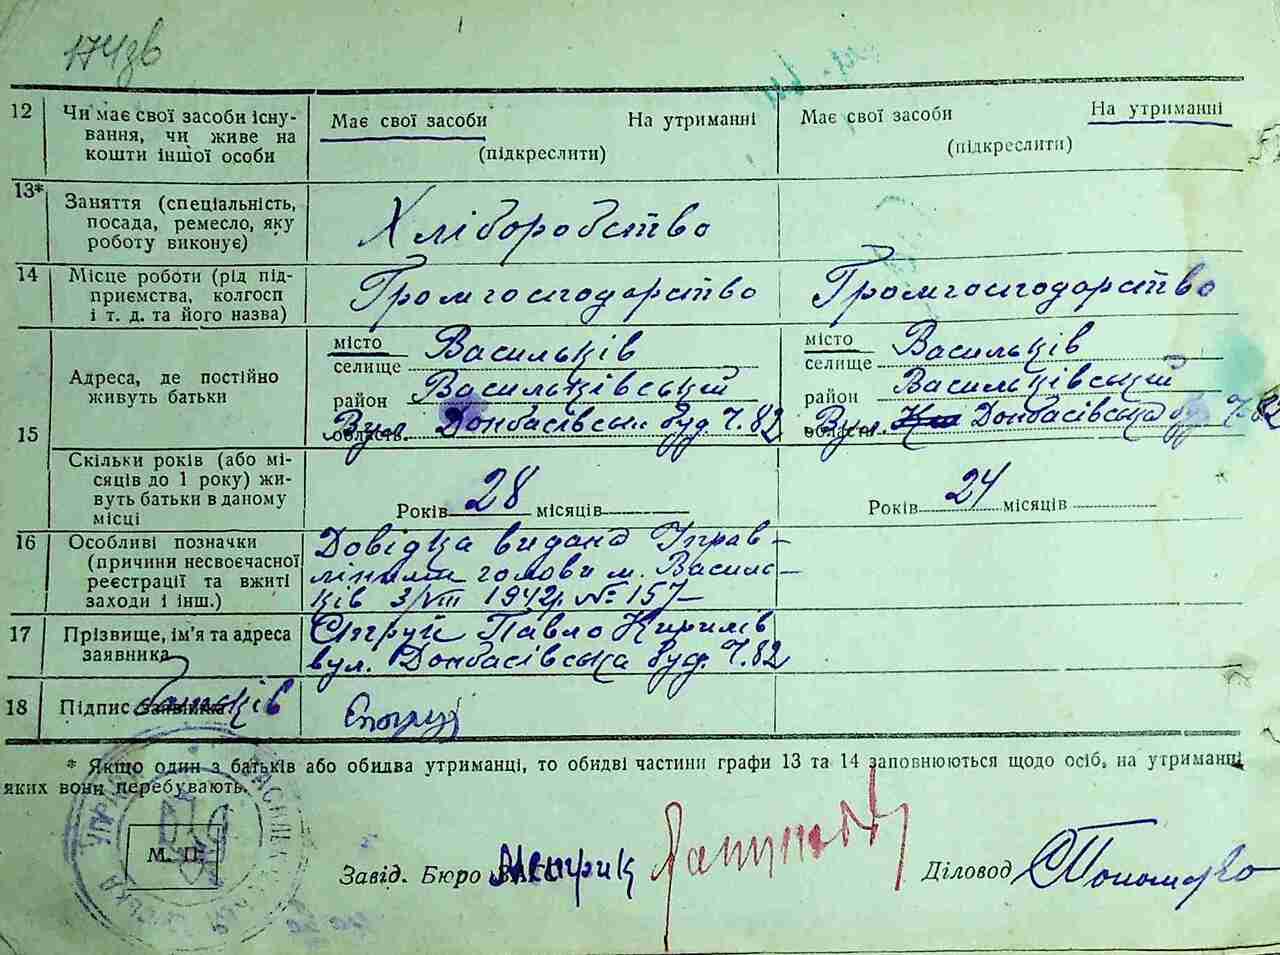 174зв
12 Чи має свої засоби існу-
вання, чи живе на
кошти іншої особи
Має свої засоби На утриманні
(підкреслити)
Має свої засоби На утриманні
(підкреслити)
13* Заняття (спеціальність,
посада, ремесло, яку
роботу виконує)
Хліборобство
14 Місце роботи (рід під-
приємства, колгосп
і т. д. та його назва)
Громгосподарство
Громгосподарство
15
Адреса, де постійно
живуть батьки
місто Васильків
селище
район Васильківський
область Вул. Донбасівська буд. Ч. 82
місто Васильків
селище
район Васильківський
область Вул. Донбасівська буд Ч. 82
Скільки років (або мі-
сяців до 1 року) жи-
вуть батьки в даному
місці
Років 28 місяців
Років 24 місяців
16 Особливі позначки
(причини несвоєчасної
реєстрації та вжиті
заходи і інш.)
Довідка видана Управ-
лінням голови м. Василь-
ків 3/VIII 1942р № 157
17 Прізвище, ім'я та адреса
заявника
Павло Кирилів
вул. Донбасівська буд. Ч. 82
18 Підпис заявника батьків
* Якщо один з батьків або обидва утриманці, то обидві частини графи 13 та 14 заповнюються щодо осіб, на утриманні
яких вони перебувають.
М. П.
Завід. Бюро
Діловод Пономар